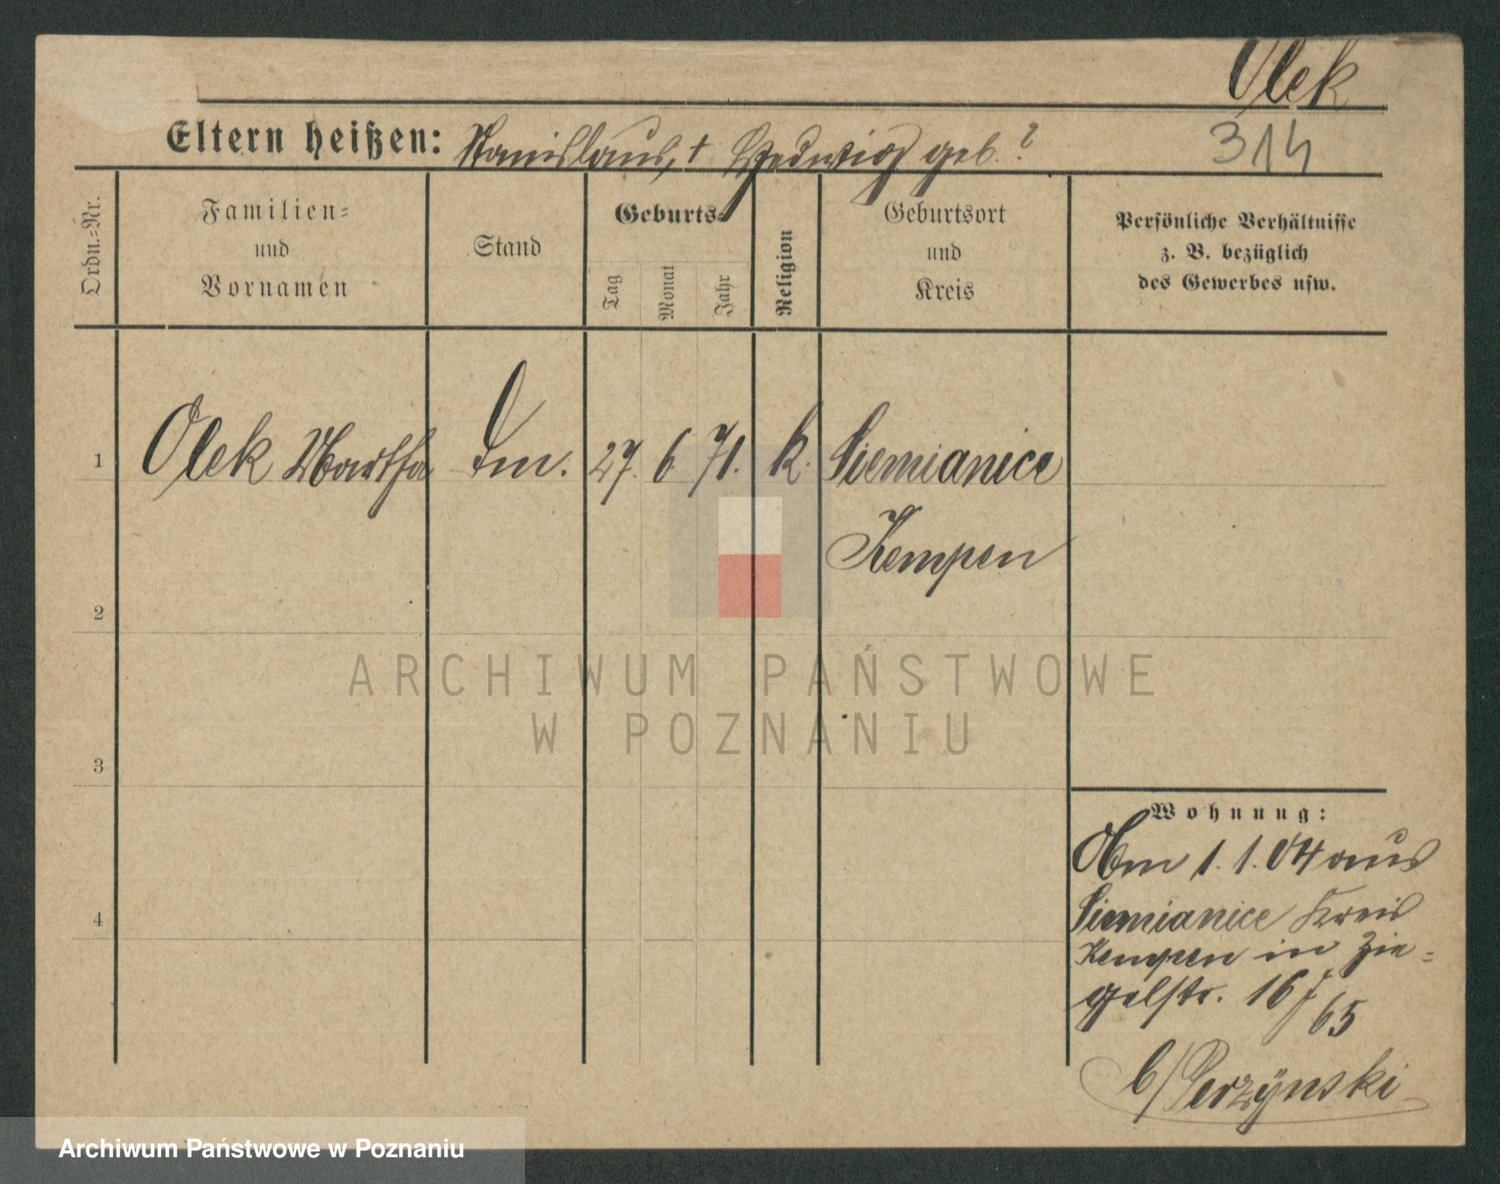 Olek
Eltern heißen: Stanislaus, † Hedwig geb. ?
314
Ordn.=Nr.
Familien=
und
Vornamen
Stand
Geburts=
Tag
Monat
Jahr
Religion
Geburtsort
und
Kreis
Persönliche Verhältnisse
z. B. bezüglich
des Gewerbes usw.
1 Olek Martha 27. 6 71. k. Siemianice
Kempen
2
3
4
Wohnung:
Am 1.1.04 aus
Siemianice Kreis
Kempen in Zie=
gelstr. 16 / 65
b/Perzÿnski
ARCHIWUM PAŃSTWOWE
W POZNANIU
Archiwum Państwowe w Poznaniu